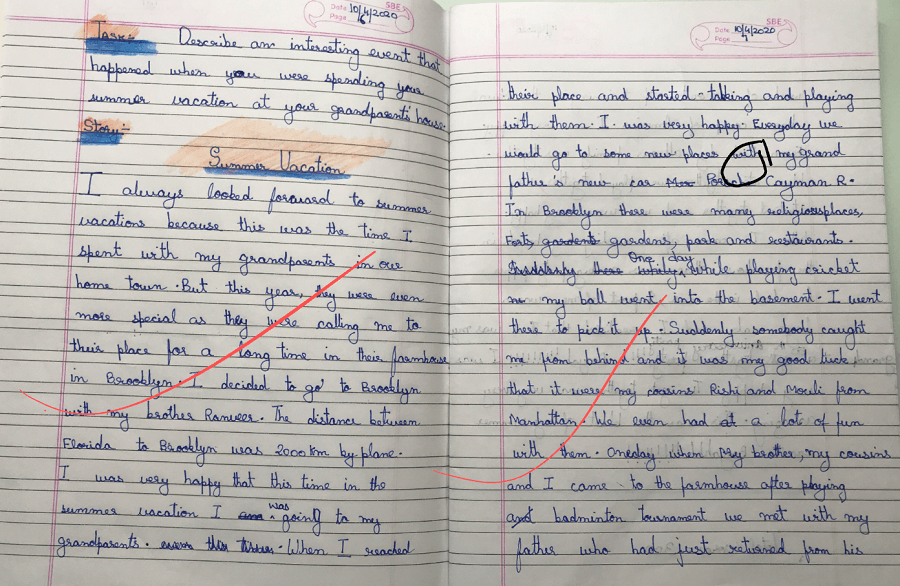 SBE
Date 10/4/2020
Page 6
Task:- Describe an interesting event that
happened when you were spending your
summer vacation at your grandparents' house.
Story:-
Summer Vacation
I always looked forward to summer
vacations because this was the time I
spent with my grandparents in our
home town. But this year, they were even
more special as they were calling me to
their place for a long time in their farmhouse
in Brooklyn. I decided to go to Brooklyn
with my brother Ranveer. The distance between
Florida to Brooklyn was 2000 km by plane.
I was very happy that this time in the
summer vacation I was going to my
grandparents. even this time. When I reached
SBE
Date 10/4/2020
Page 7
their place and started talking and playing
with them. I was very happy. Everyday we
would go to some new places with my grand
father's new car Cayman R.
In Brooklyn there were many religiousplaces,
Forts, gardents gardens, park and restaurants.
Suddenly there One day, while playing cricket
my ball went into the basement. I went
there to pick it up. Suddenly somebody caught
me from behind and it was my good luck
that it were my cousins Rishi and Mouli from
Manhattan. We even had a lots of fun
with them. Oneday when My brother, my cousins
and I came to the farmhouse after playing
badminton tournament we met with my
father who had just returned from his